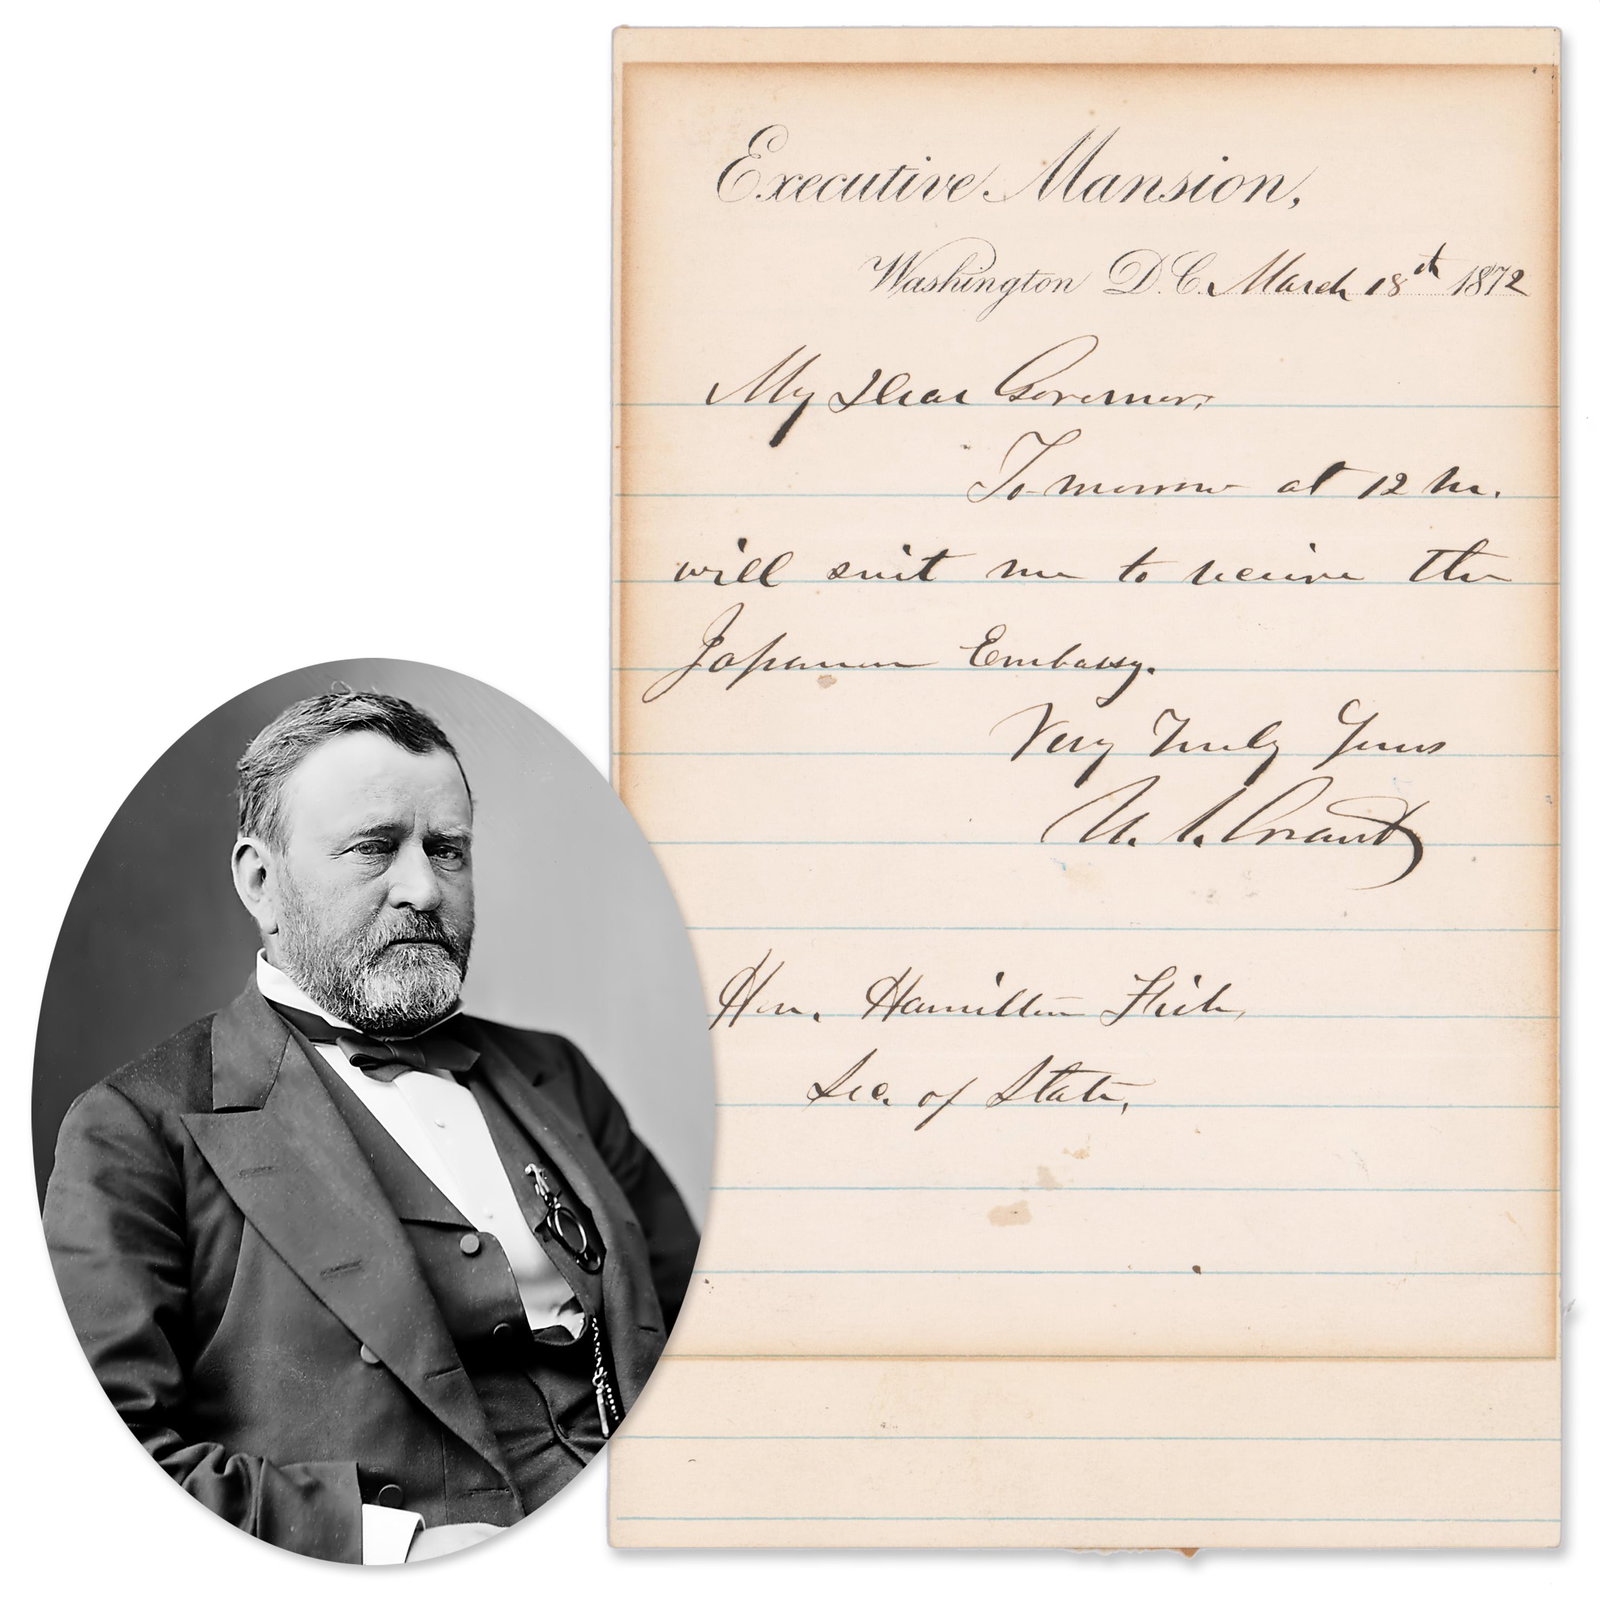 Executive Mansion,
Washington D.C. March 18th 1872
My Dear Governor;
To-morrow at 12 m.
will suit me to receive the
Japanese Embassy.
Very Truly Yours
U. S. Grant
Hon. Hamilton Fish,
Sec. of State,